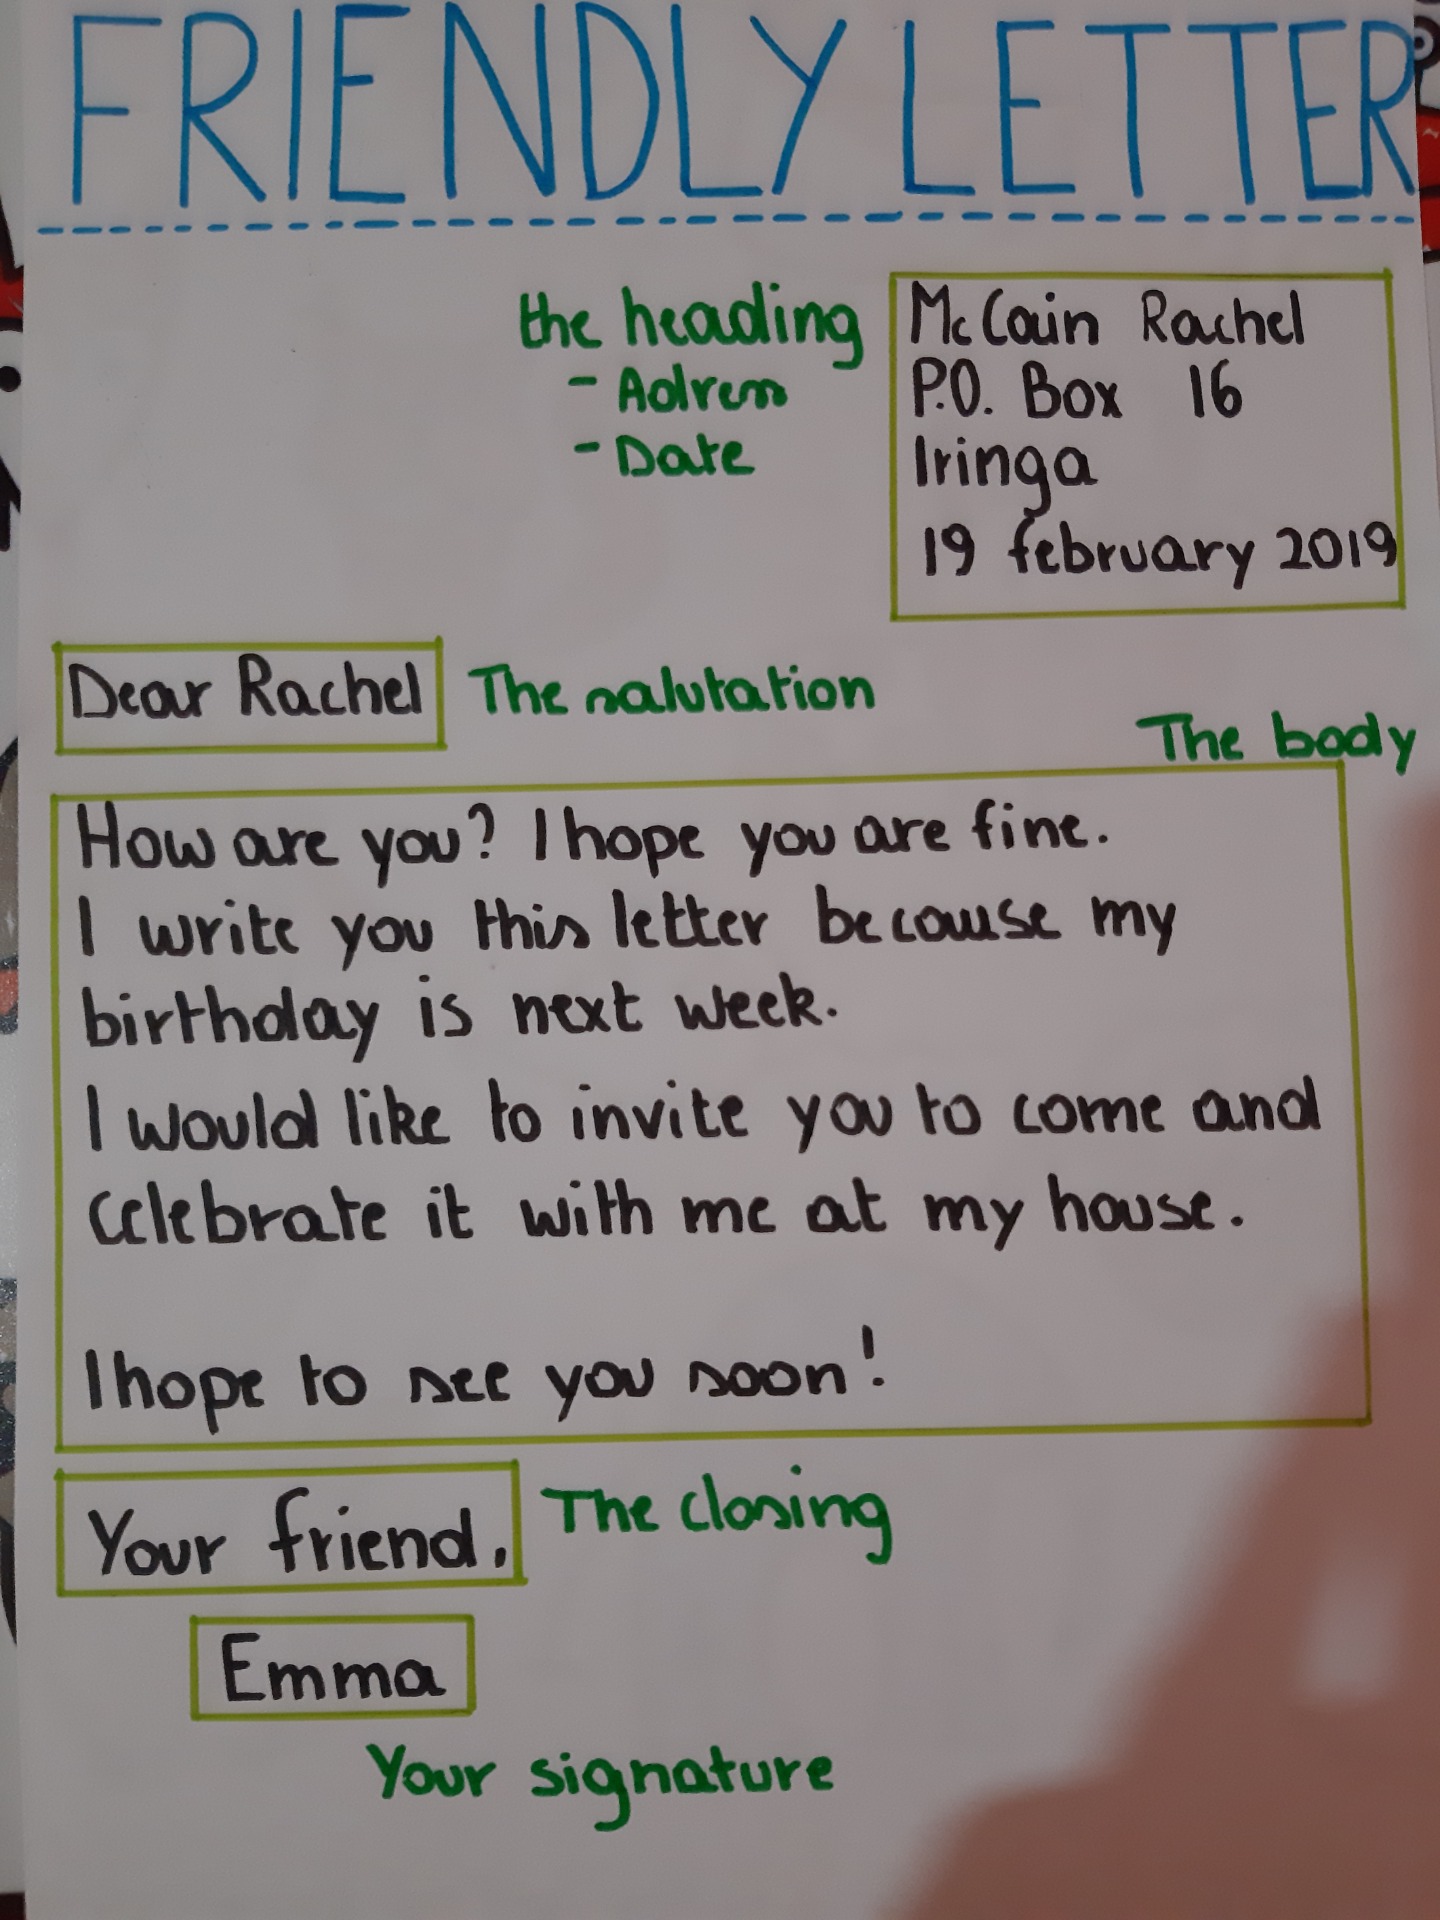 FRIENDLY LETTER
the heading
- Adress
- Date
McCain Rachel
P.O. Box 16
Iringa
19 february 2019
Dear Rachel
The salutation
The body
How are you? I hope you are fine.
I write you this letter because my
birthday is next week.
I would like to invite you to come and
celebrate it with me at my house.
I hope to see you soon!
Your friend,
The closing
Emma
Your signature